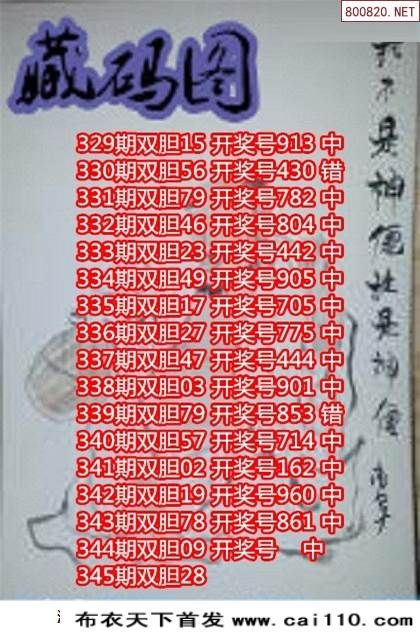 800820.NET
藏码图
我不是神便社是神便
329期双胆15 开奖号913 中
330期双胆56 开奖号430 错
331期双胆79 开奖号782 中
332期双胆46 开奖号804 中
333期双胆23 开奖号442 中
334期双胆49 开奖号905 中
335期双胆17 开奖号705 中
336期双胆27 开奖号775 中
337期双胆47 开奖号444 中
338期双胆03 开奖号901 中
339期双胆79 开奖号853 错
340期双胆57 开奖号714 中
341期双胆02 开奖号162 中
342期双胆19 开奖号960 中
343期双胆78 开奖号861 中
344期双胆09 开奖号 中
345期双胆28
布衣天下首发 www.cai110.com